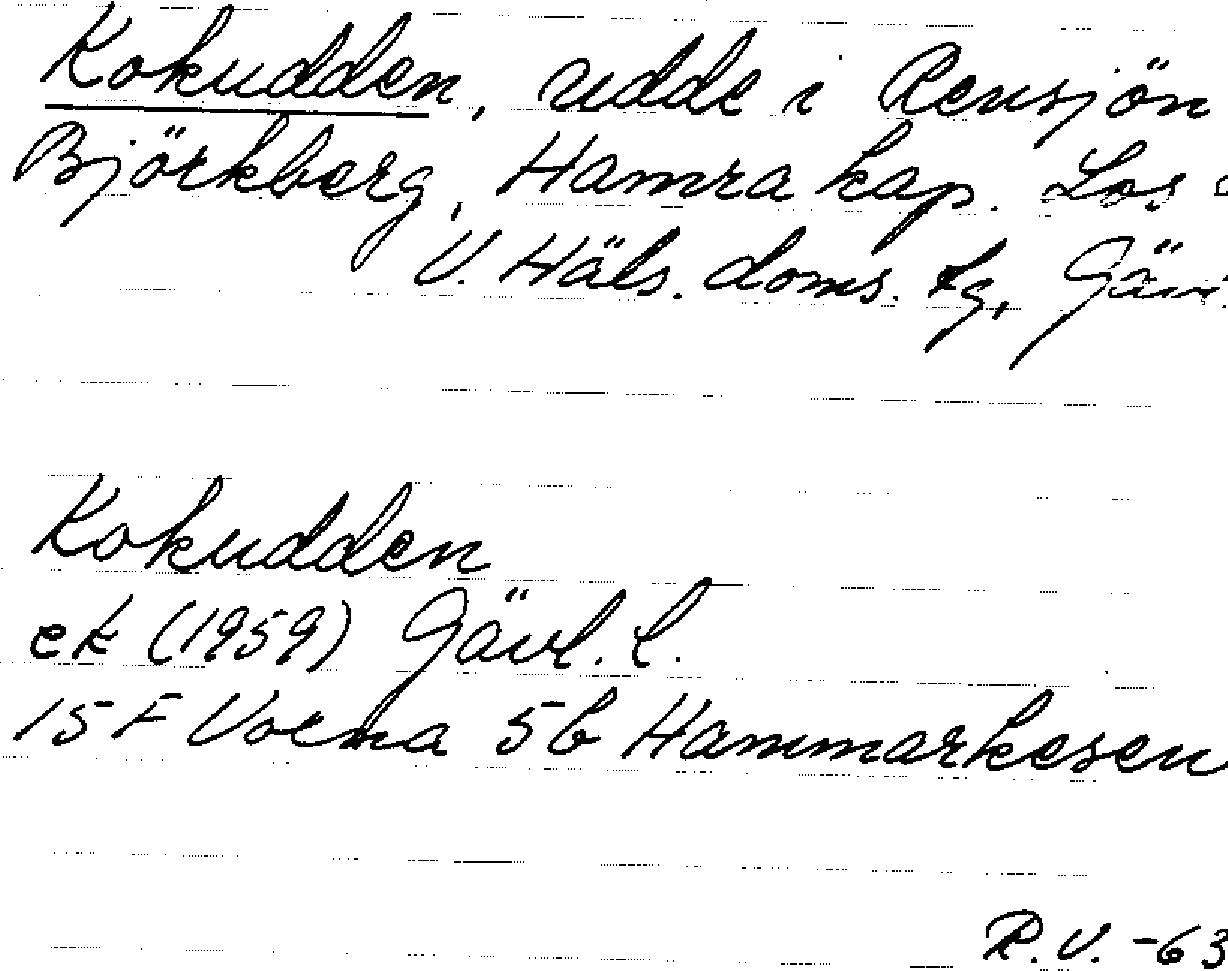 Kokudden, udde i Rensjön
Björkberg, Hamra kap. Los
V. Häls. doms. tg, Gävl.
Kokudden
ek (1959) Gävl. l.
15 F Voxna 5b Hammarkesen
R.V. -63